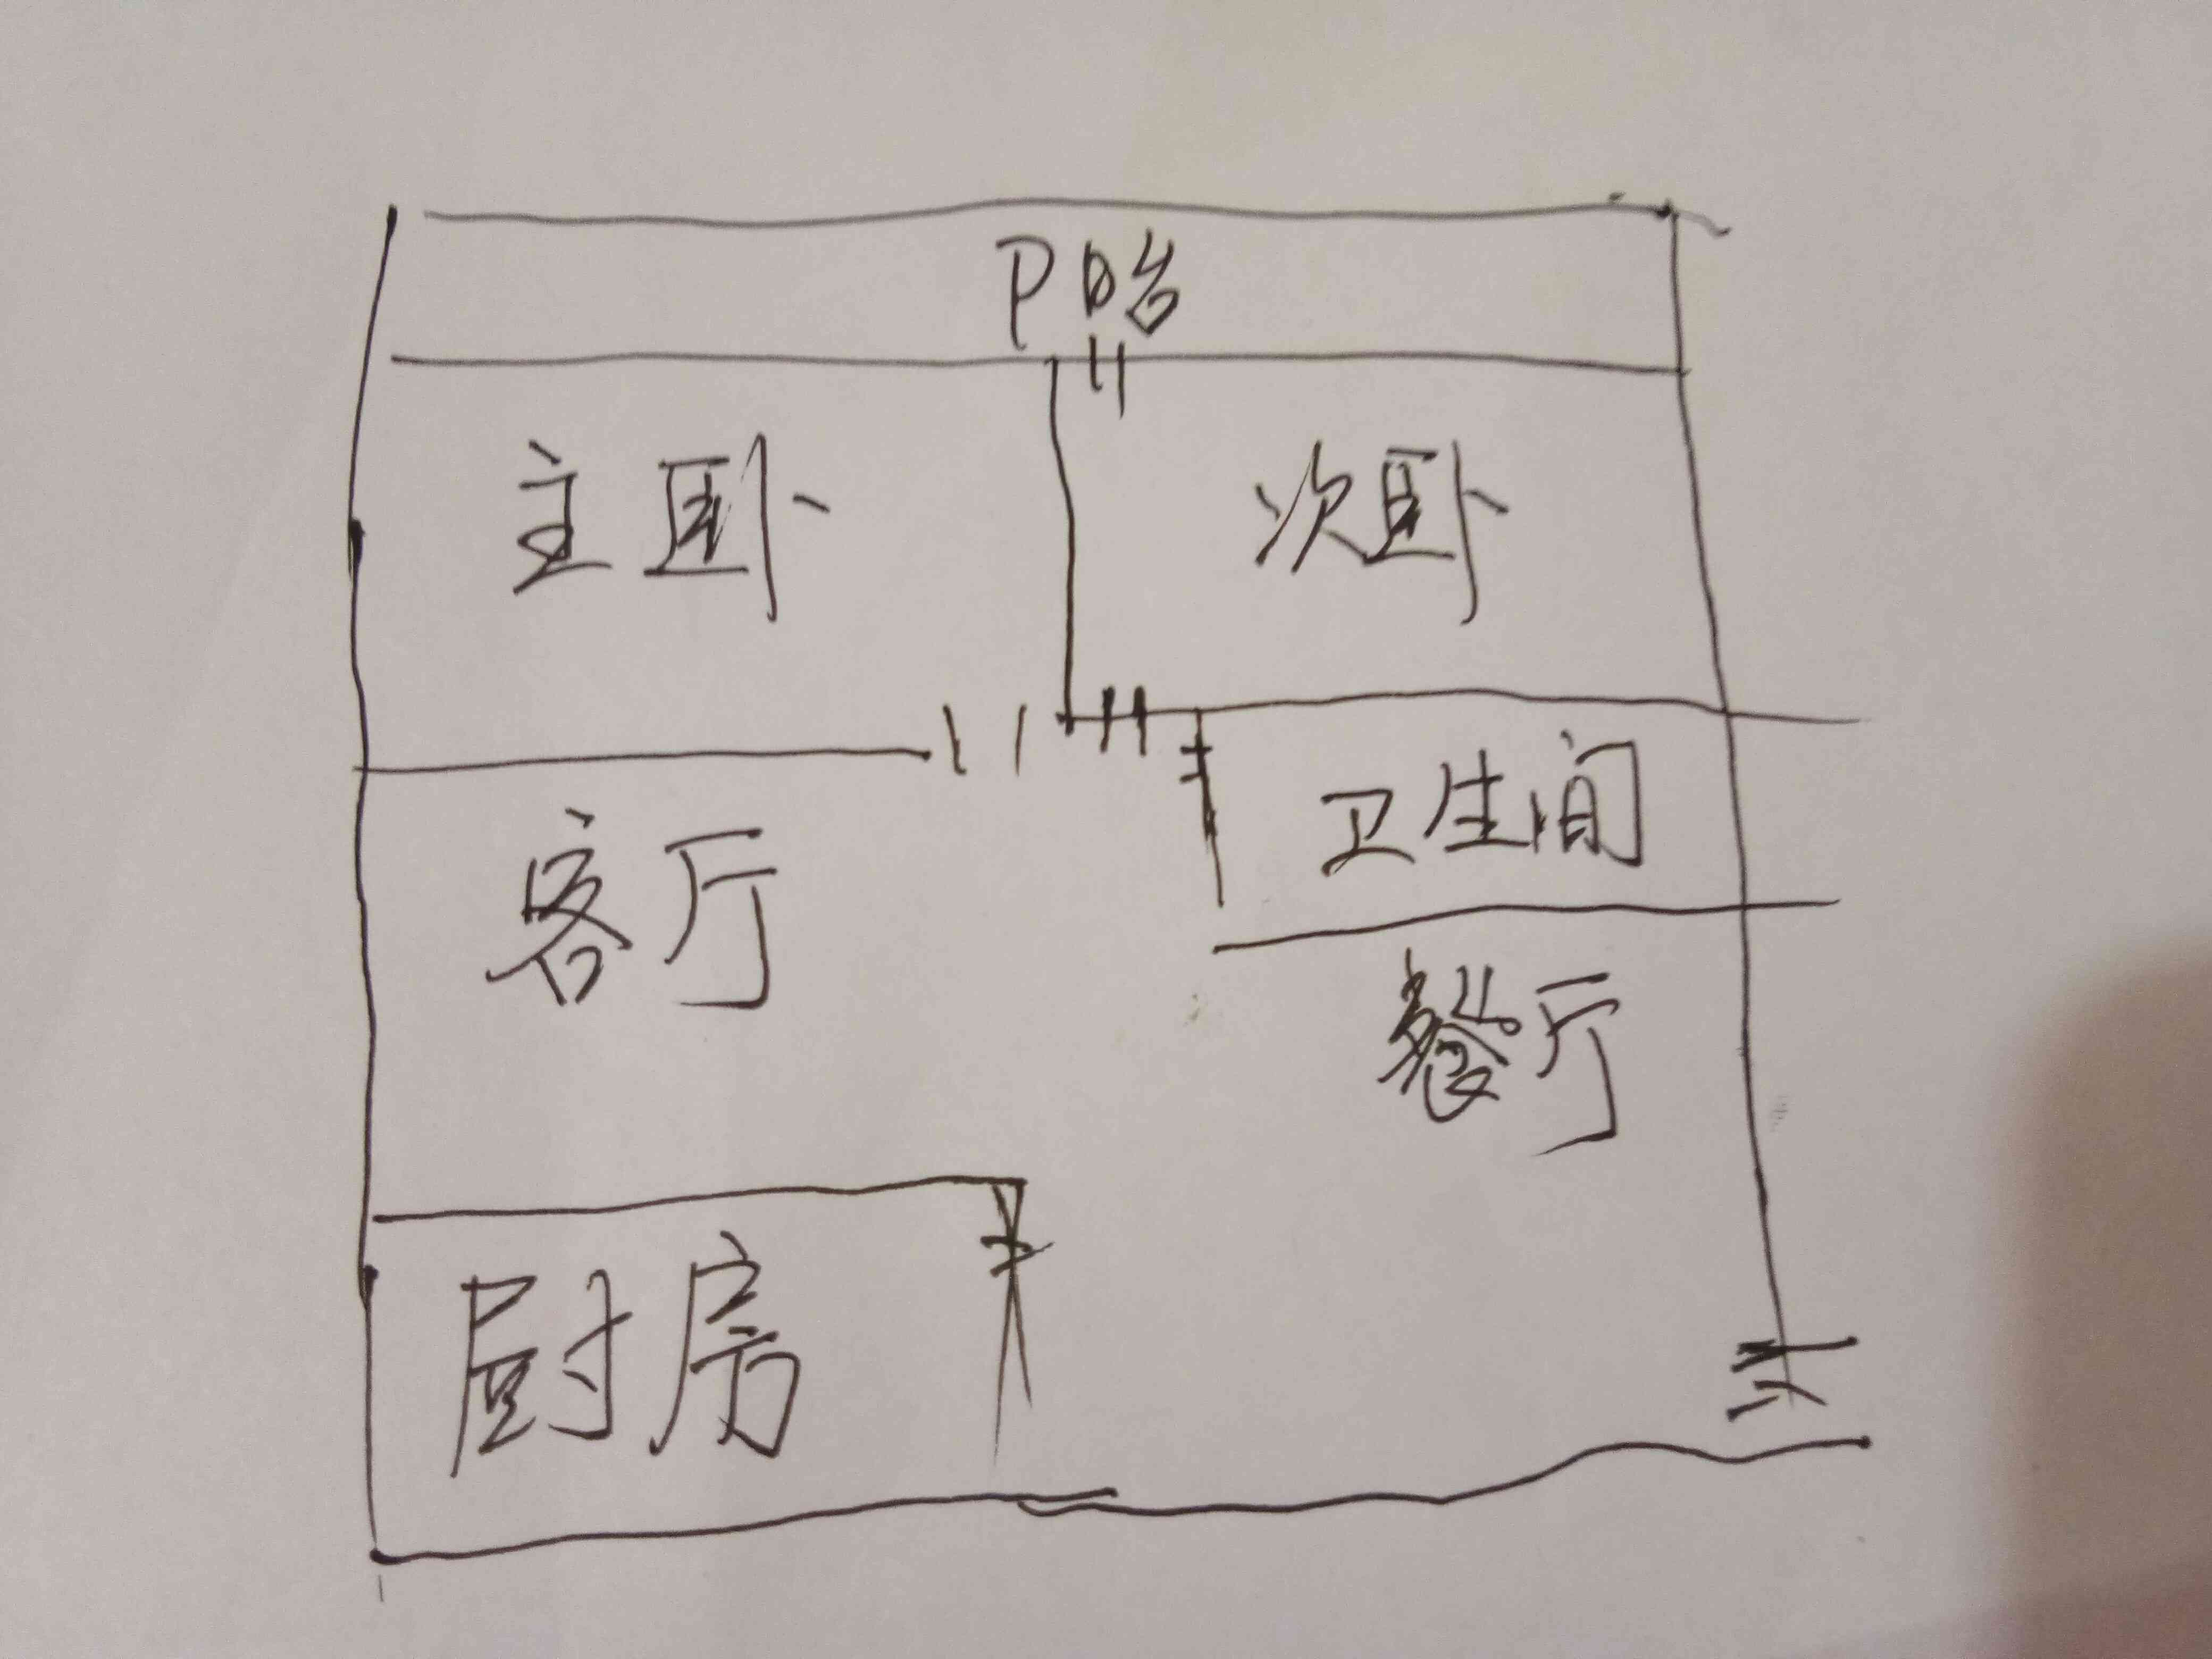 阳台
主卧
次卧
卫生间
客厅
餐厅
厨房